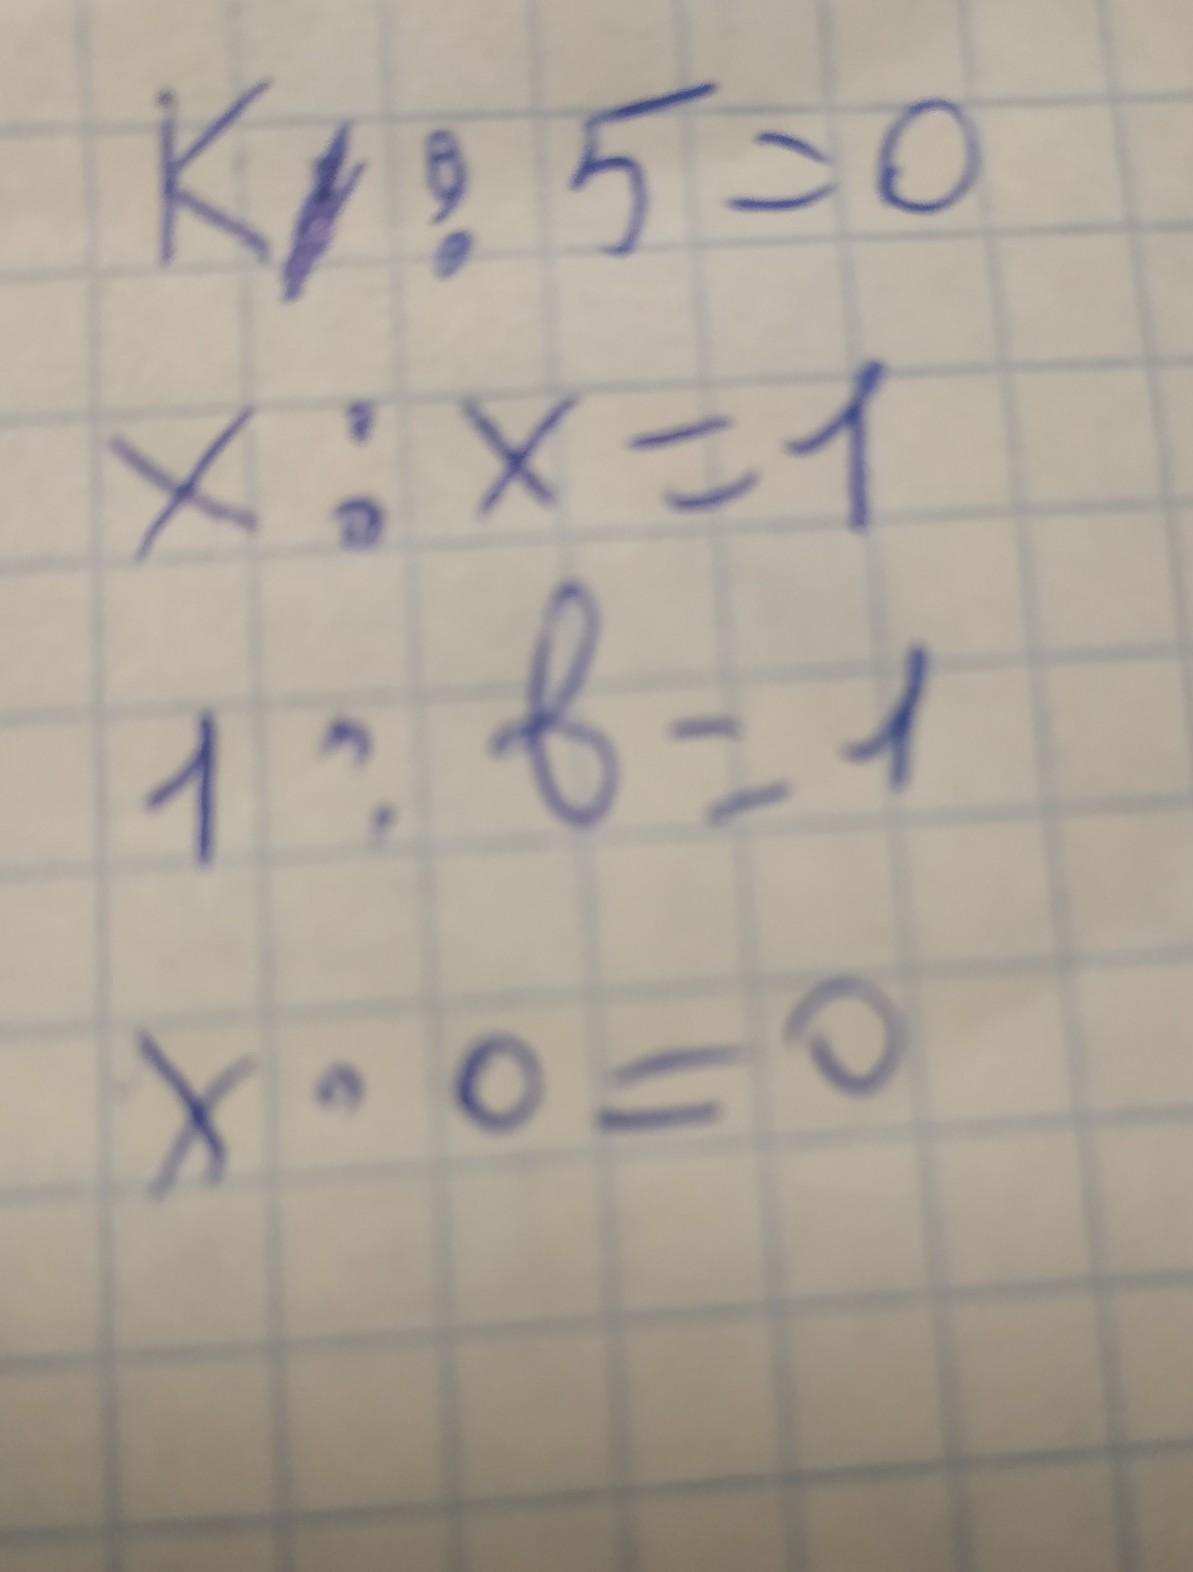 K : 5 = 0
x : x = 1
1 : в = 1
x · 0 = 0